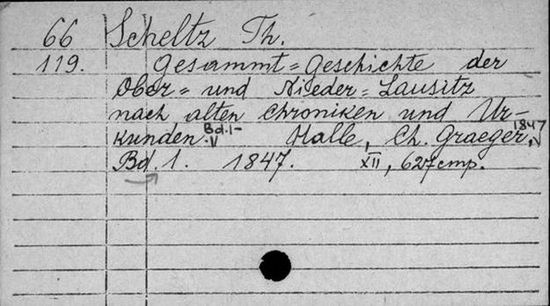 66 Scheltz Th.
119. Gesammt=Geschichte der
Ober= und Nieder=Lausitz
nach alten Chroniken und Ur-
kunden. Bd. 1- Halle, Ch. Graeger, 1847
Bd. 1. 1847. XII, 627 стр.